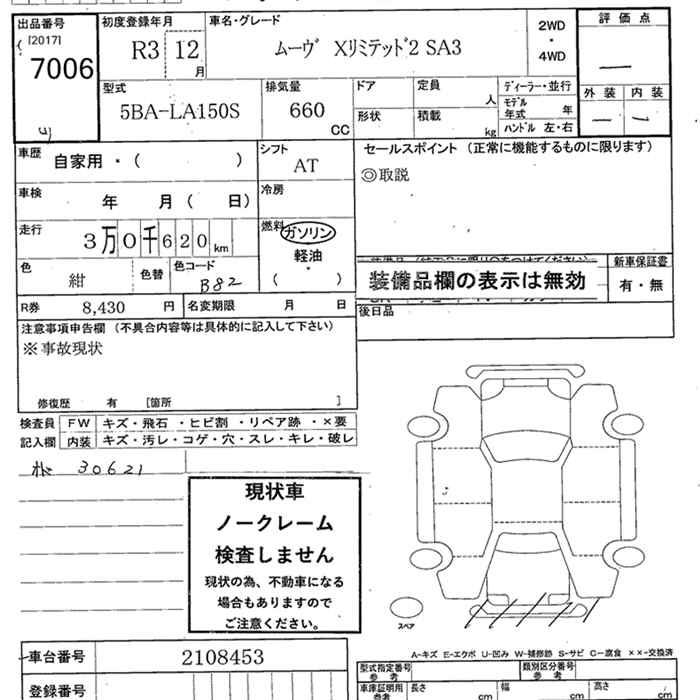 出品番号
[2017]
7006
初度登録年月
R3 12 月
車名・グレード
ムーヴ Xリミテッド2 SA3
2WD
・
4WD
評価点
—
外装 内装
— —
型式
5BA-LA150S
排気量
660
CC
ドア
定員
人
形状
積載
kg
ディーラー・並行
モデル年式 年
ハンドル 左・右
車歴 自家用・( )
シフト
AT
セールスポイント (正常に機能するものに限ります)
◎取説
車検 年 月( 日)
冷房
走行
3万0千620km
燃料 ガソリン
軽油
・
( )
色
紺
色替
色コード
B82
装備品欄の表示は無効
新車保証書
有・無
R券 8,430 円
名変期限 月 日
後日品
注意事項申告欄 (不具合内容等は具体的に記入して下さい)
※事故現状
修復歴 有 [箇所 ]
検査員記入欄
FW キズ・飛石 ・ヒビ割 ・リペア跡 ・×要
内装 キズ・汚レ・コゲ・穴・スレ・キレ・破レ
30621
現状車
ノークレーム
検査しません
現状の為、不動車になる
場合もありますので
ご注意ください。
スペア
A-キズ E-エクボ U-凹み W-補修跡 S-サビ C-腐食 ××-交換済
車台番号 2108453
登録番号
型式指定番号
参考
類別区分番号
参考
車庫証明用
参考
長さ cm
幅 cm
高さ cm